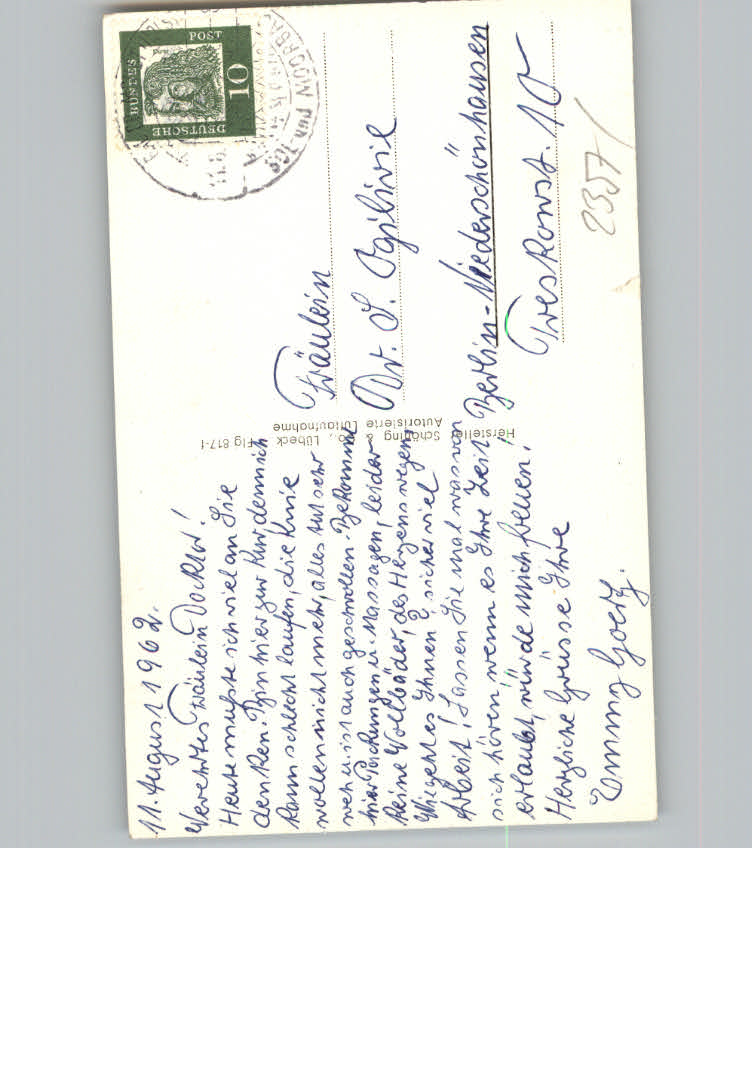 11. August 1962.
Verehrtes Fräulein Docktor!
Heute mußte ich viel an Sie
denken. Bin hier zur Kur denn ich
kann schlecht laufen, die Knie
wollen nicht mehr, alles tut sehr
weh u. ist auch geschwollen. Bekomme
hier Packungen u. Massagen, leider
keine Vollbäder, des Herzens wegen.
Wie geht es Ihnen? sicher viel
Arbeit! Lassen Sie mal was von
sich hören wenn es Ihre Zeit
erlaubt, würde mich freuen!
Herzliche Grüsse Ihre
Emmy Goetz.
Hersteller: Schöning & Co., Lübeck Flg 817-1
Autorisierte Luftaufnahme
DEUTSCHE
BUNDES
POST
10
Fräulein
Dr. S. Ogilvie
Berlin-Niederschönhausen
Treskowst. 10
2357/